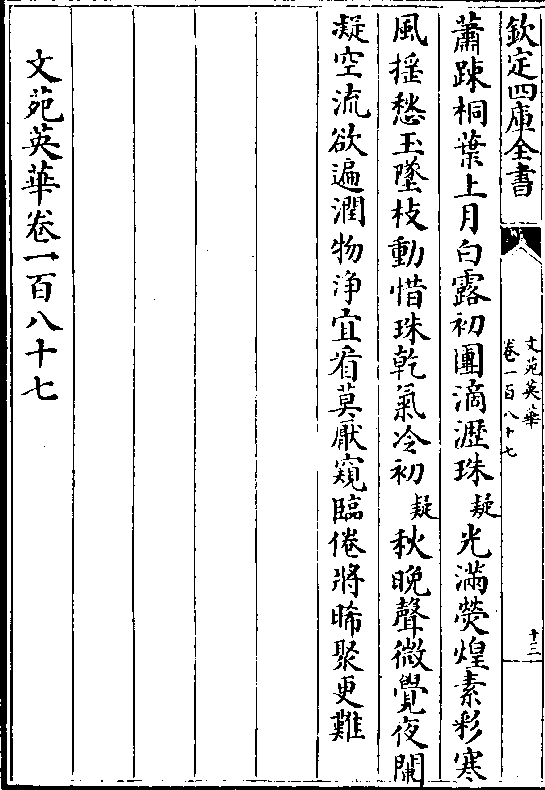 欽定四庫全書
文苑英華
卷一百八十七
十三
蕭踈桐葉上月白露初團滴瀝珠疑光滿熒煌素彩寒
風摇愁玉墜枝動惜珠乾氣冷初疑秋晚聲微覺夜闌
凝空流欲遍潤物淨宜看莫厭窺臨倦將晞聚更難
文苑英華卷一百八十七